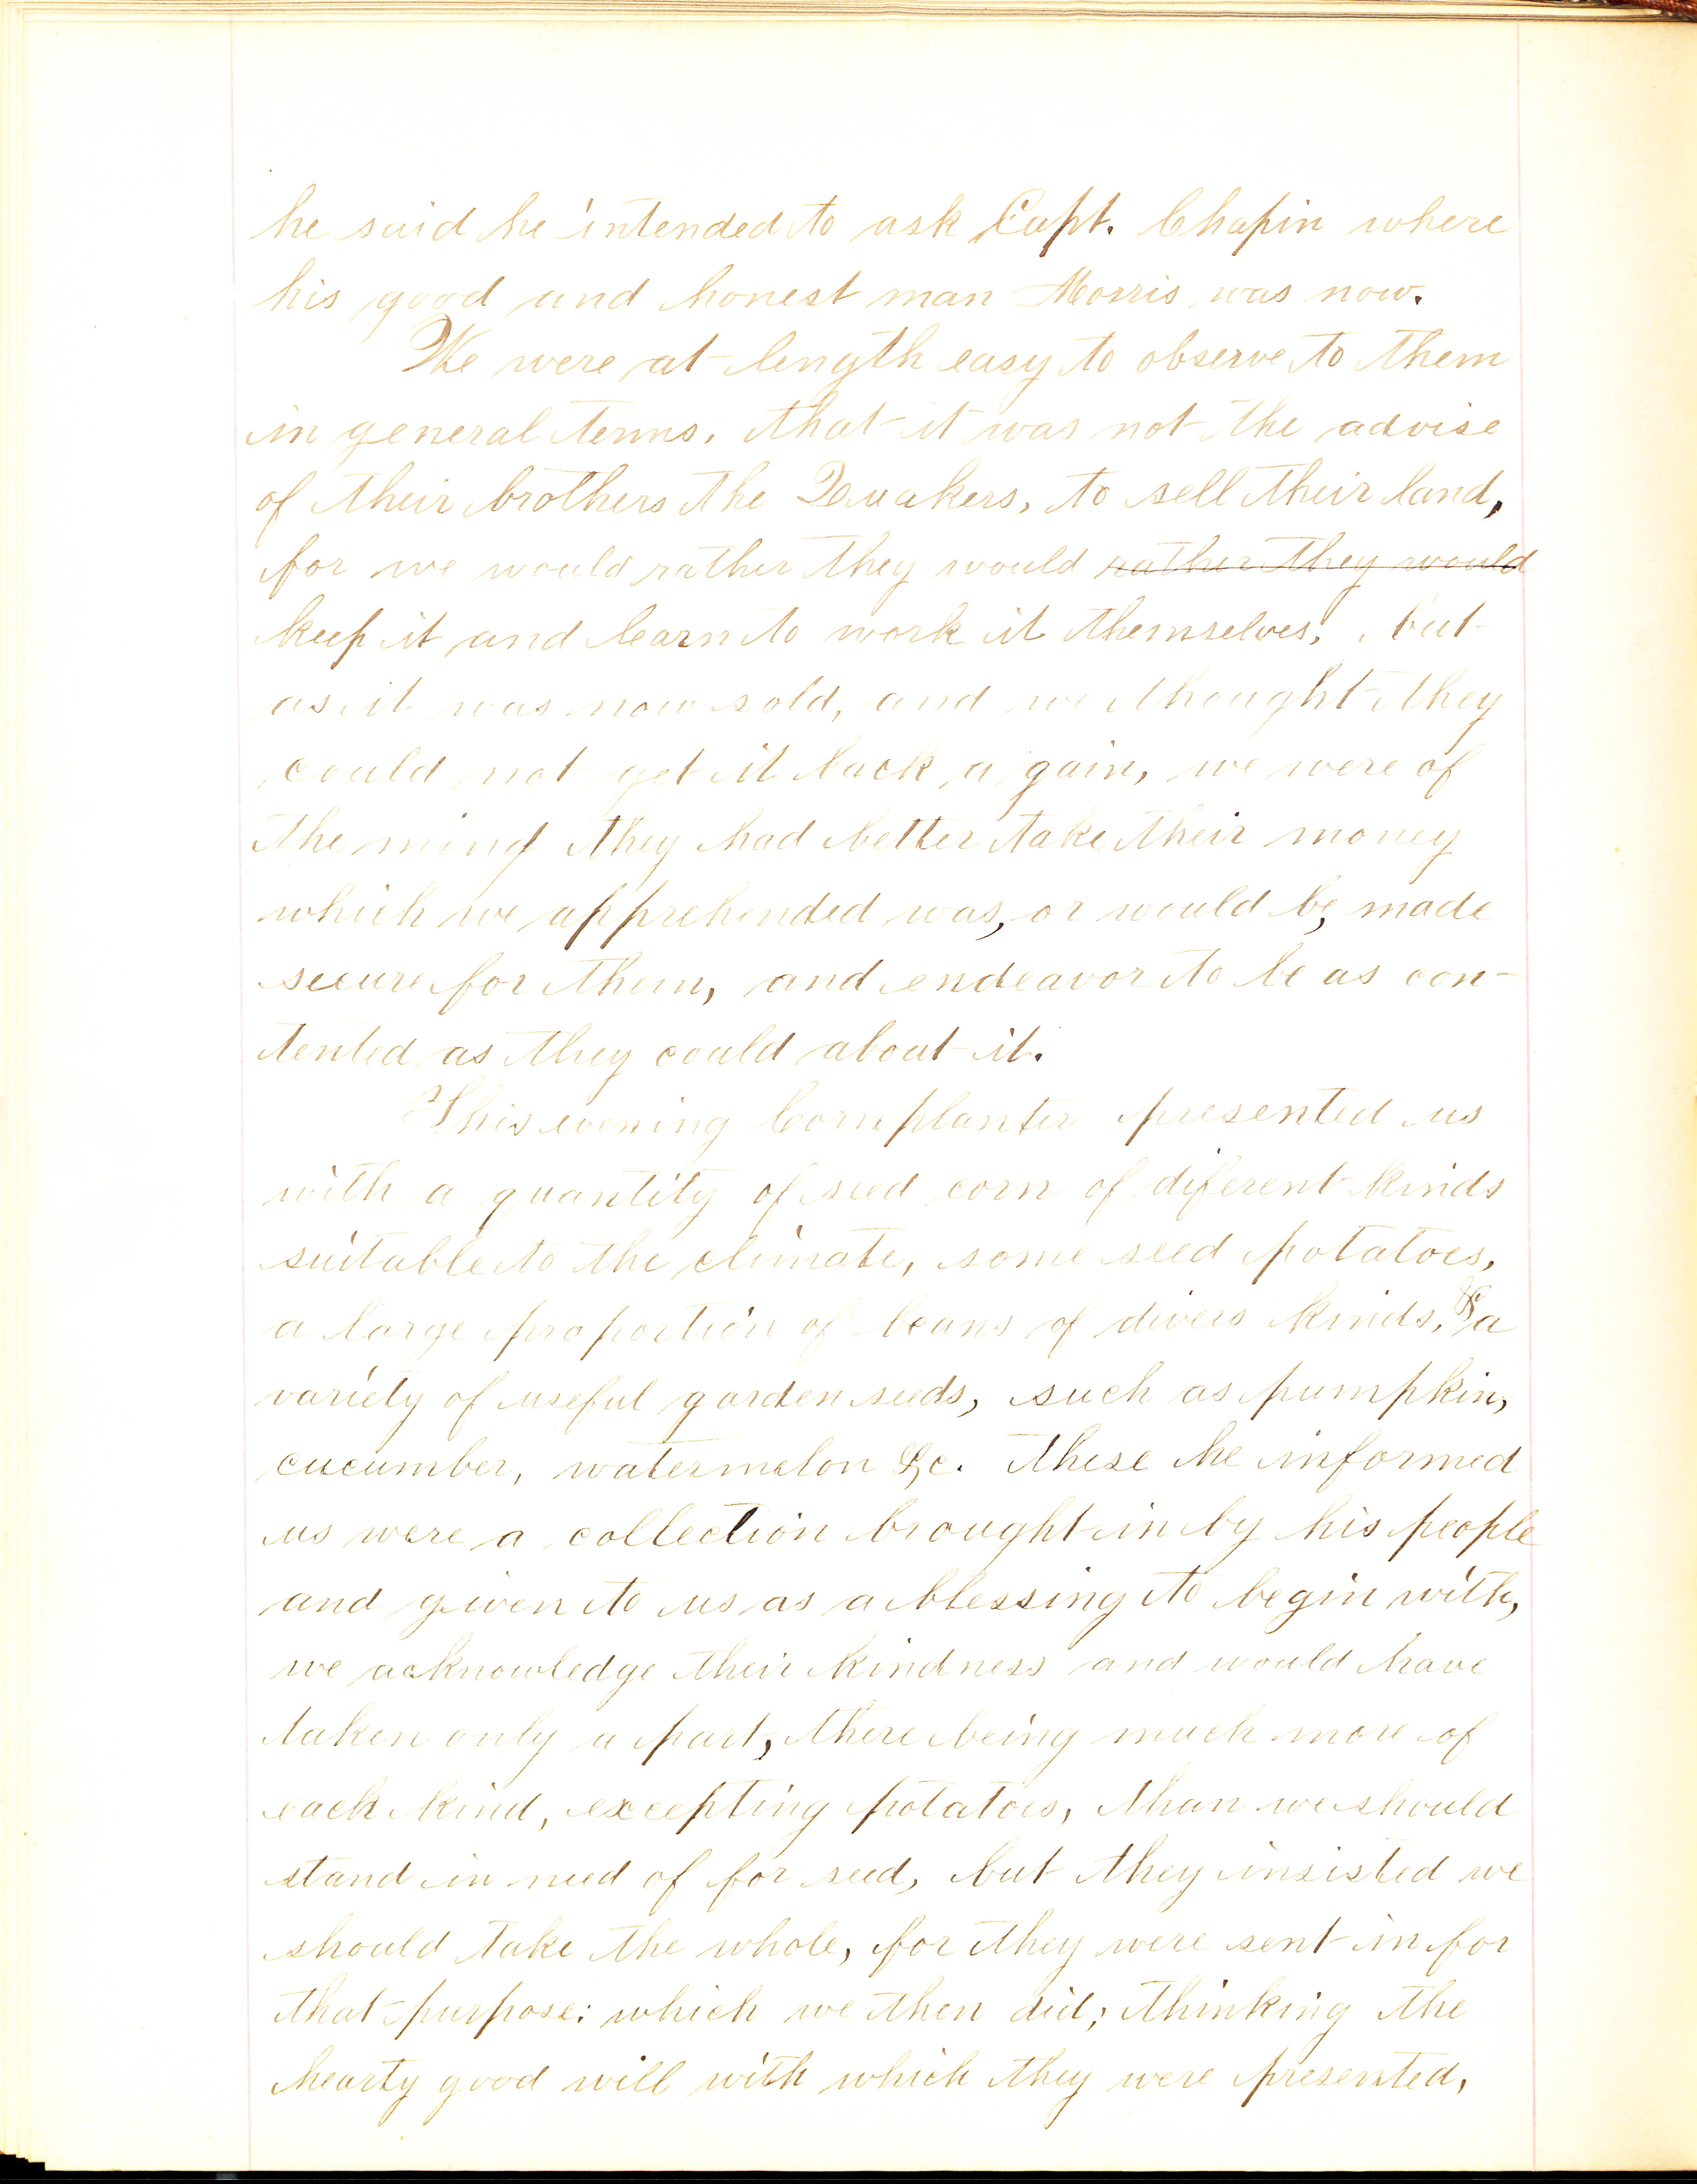 he said he intended to ask Capt. Chapin where
his good and honest man Morris was now.
We were at length easy to observe to them
in general terms, that it was not the advise
of their brothers the Quakers, to sell their land,
for we would rather they would rather they would
keep it and learn to work it themselves, but
as it was now sold, and we thought they
could not get it back again, we were of
the mind they had better take their money
which we apprehended was, or would be, made
secure for them, and endeavor to be as con-
tented as they could about it.
This evening Cornplanter presented us
with a quantity of seed corn of diferent kinds
suitable to the climate, some seed potatoes,
a large proportion of beans of divers kinds, & a
variety of useful garden seeds, such as pumpkin,
cucumber, watermelon &c. these he informed
us were a collection brought in by his people
and given to us as a blessing to begin with,
we acknowledge their kindness and would have
taken only a part, there being much more of
each kind, excepting potatoes, than we should
stand in need of for seed, but they insisted we
should take the whole, for they were sent in for
that purpose: which we then did; thinking the
hearty good will with which they were presented,